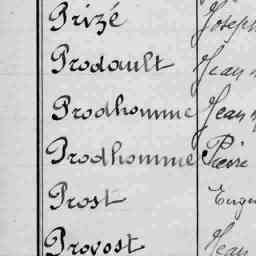 Prizé Joseph
Prodault Jean
Prodhomme Jean
Prodhomme Pierre
Prost
Provost Jean